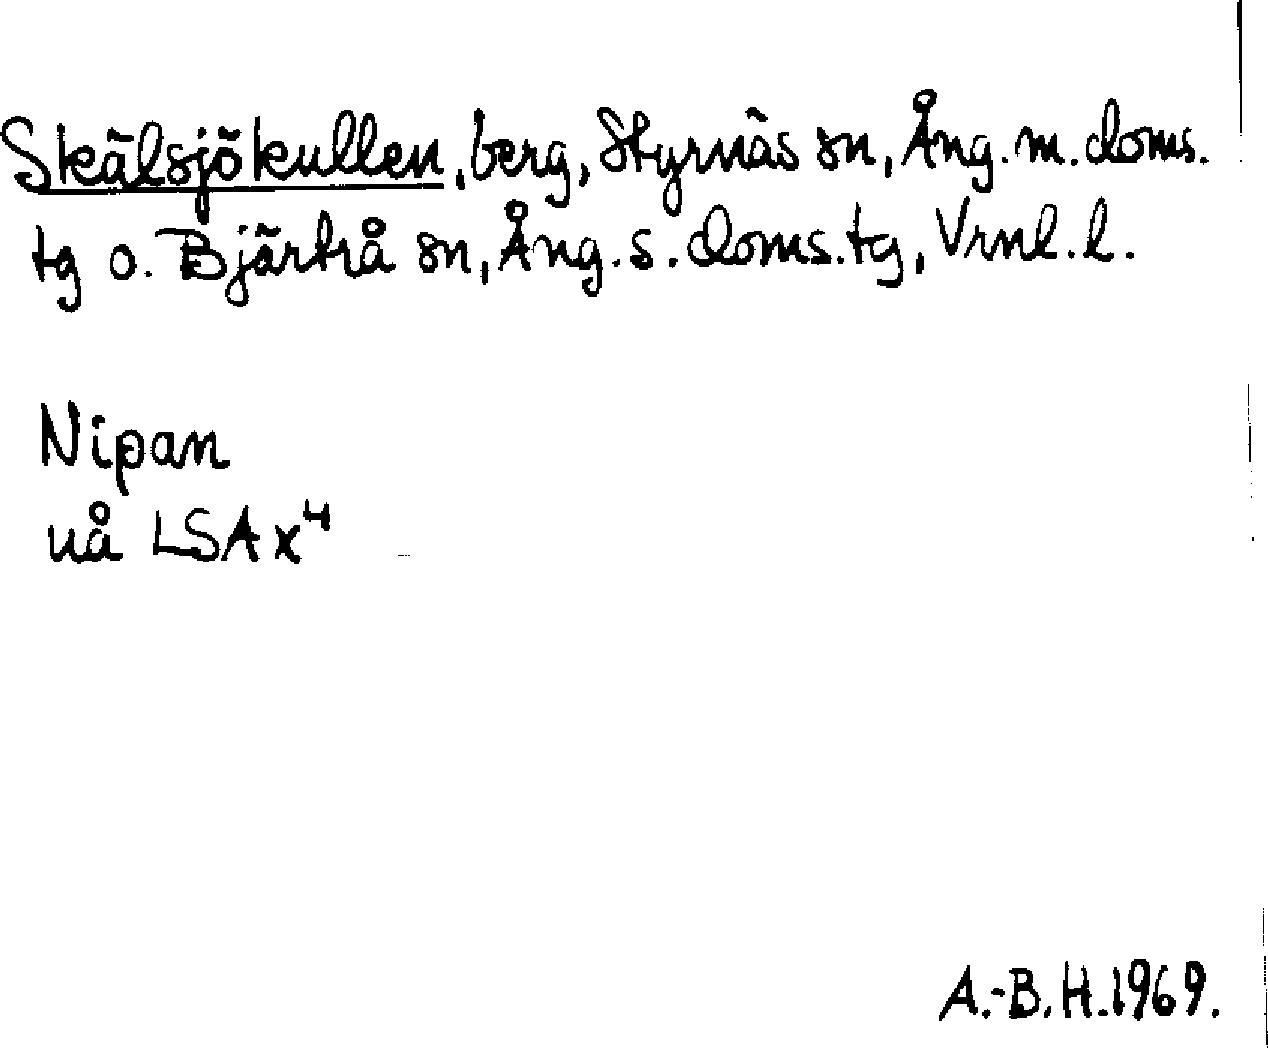 Skälsjökullen, berg, Styrnäs sn, Ång. m. doms.
tg o. Bjärtrå sn, Ång. s. doms. tg, Vrnl. l.
Nipan
uå LSA x⁴
A.-B. H. 1969.